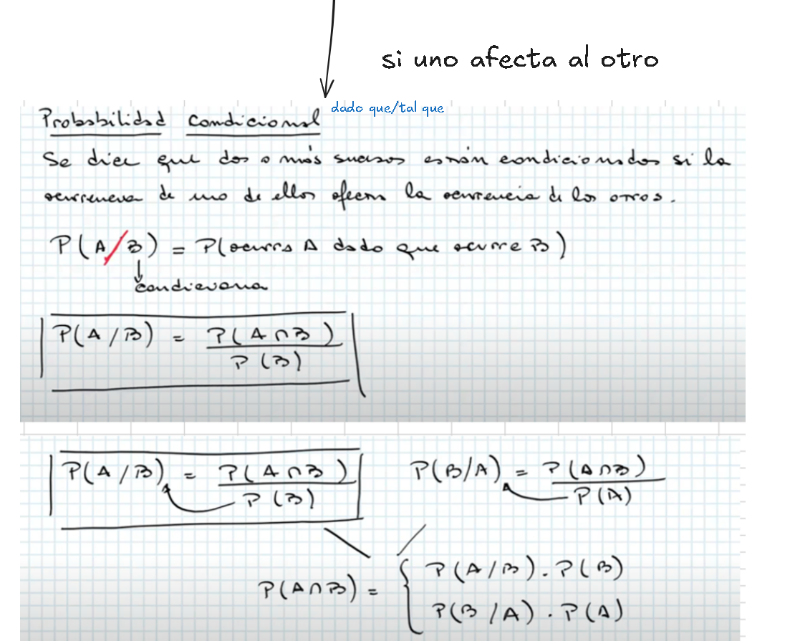 si uno afecta al otro
dado que/tal que
Probabilidad Condicional
Se dice que dos o más sucesos están condicionados si la
ocurrencia de uno de ellos afecta la ocurrencia de los otros.
P(A/B) = P(ocurra A dado que ocurre B)
condiciona
P(A/B) = P(A∩B) / P(B)
P(A/B) = P(A∩B) / P(B)    P(B/A) = P(A∩B) / P(A)
P(A∩B) = { P(A/B) . P(B)
P(B/A) . P(A)